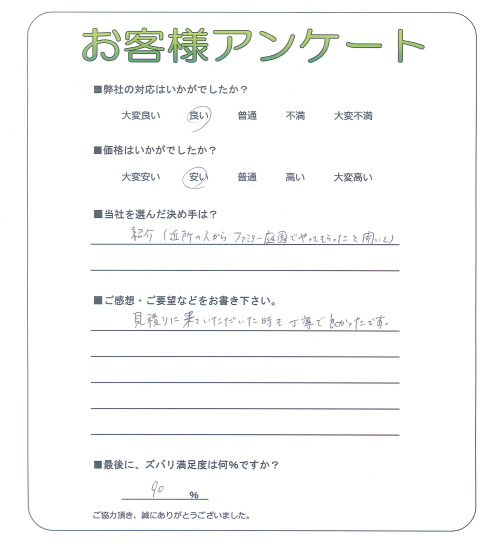 お客様アンケート
■弊社の対応はいかがでしたか？
大変良い 良い 普通 不満 大変不満
■価格はいかがでしたか？
大変安い 安い 普通 高い 大変高い
■当社を選んだ決め手は？
紹介（近所の人から ファミリー庭園でやってもらったと聞いて）
■ご感想・ご要望などをお書き下さい。
見積りに来ていただいた時も丁寧で良かったです。
■最後に、ズバリ満足度は何%ですか？
90 %
ご協力頂き、誠にありがとうございました。